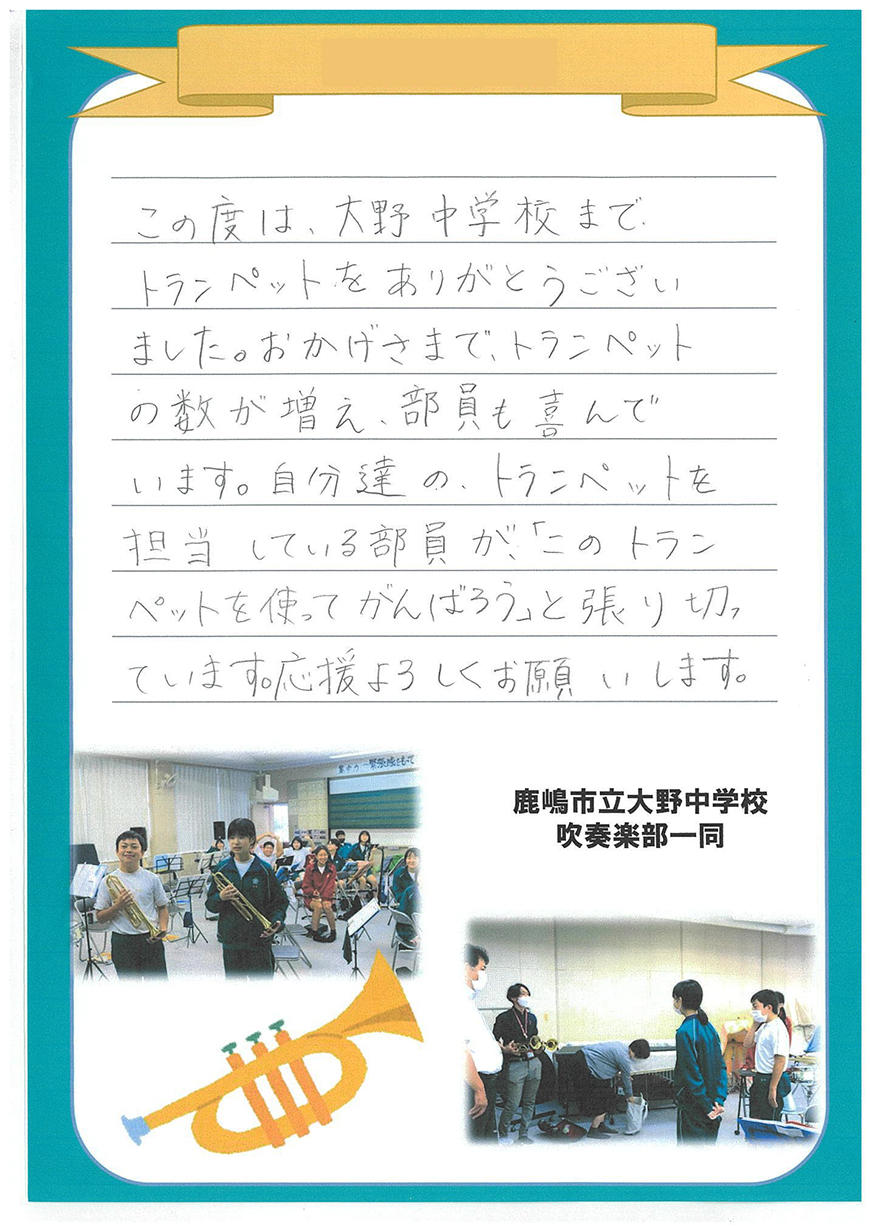 この度は、大野中学校まで
トランペットをありがとうござい
ました。おかげさまで、トランペット
の数が増え、部員も喜んで
います。自分達の、トランペットを
担当している部員が、「このトラン
ペットを使ってがんばろう」と張り切っ
ています。応援よろしくお願いします。
鹿嶋市立大野中学校
吹奏楽部一同